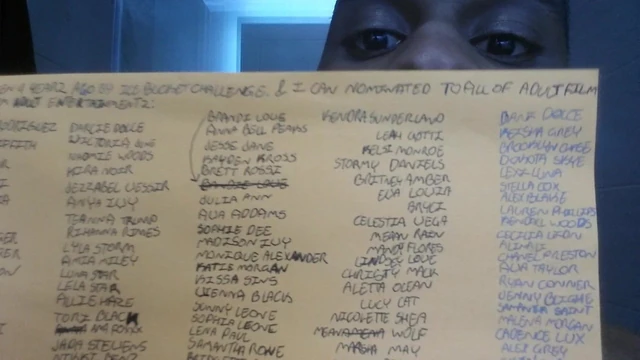 4 YEARZ AGO BY ICE BUCKET CHALLENGE, & I CAN NOMINATED TO ALL OF ADULT FILM
ADULT ENTERTAINMENTZ:
RODRIGUEZ
DARCIE DOLCE
VICTORIA
NAOMIE WOODS
KIRA NOIR
JEZZABEL VESSIR
ANYA IVY
TEANNA TRUMP
RIHANNA RIMES
LYLA STORM
AMIA MILEY
LUNA STAR
LELA STAR
ALLIE HAZE
TORI BLACK
ANA FOXXX
JADA STEVENS
BRANDI LOVE
ANNA BELL PEAKS
JESSE JANE
KAYDEN KROSS
BRETT ROSSI
JULIA ANN
AVA ADDAMS
SOPHIE DEE
MADISON IVY
MONIQUE ALEXANDER
KATIE MORGAN
KISSA SINS
VIENNA BLACK
SUNNY LEONE
SOPHIA LEONE
LENA PAUL
SAMANTHA RONE
KENDRA SUNDERLAND
LEAH GOTTI
KELSI MONROE
STORMY DANIELS
BRITNEY AMBER
EVA LOVIA
BRYCI
CELESTIA VEGA
MEGAN RAIN
MANA FLORES
LINDSEY LOVE
CHRISTY MACK
ALETTA OCEAN
LUCY CAT
NICOLETTE SHEA
WOLF
MARSHA MAY
DANI DOLCE
KEISHA GREY
BROOKLYN CHASE
DAKOTA SKYE
LEXI LUNA
STELLA COX
ALEX BLAKE
LAUREN PHILLIPS
KENDALL WOODS
CECILIA LION
ALINA LI
CHANEL PRESTON
AVA TAYLOR
RYAN CONNER
SAMANTHA SAINT
MALENA MORGAN
CADENCE LUX
ALEX GREY